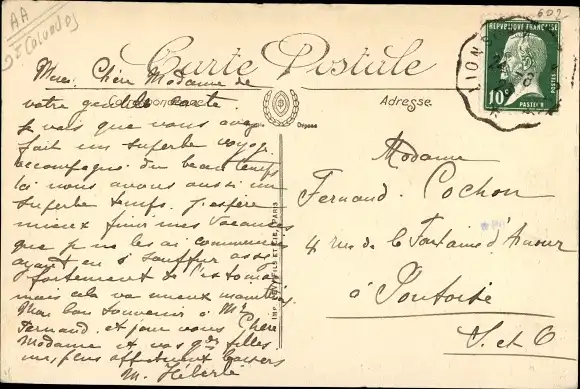 AA
Calvados
609
Carte Postale
Correspondance
Adresse
Dépose
RÉPUBLIQUE FRANÇAISE
POSTES
10
PASTEUR
LION
Merci Chère Madame de
votre gentille carte
je vois que vous avez
fait un superbe voyage
accompagné du beau temps
Ici nous avons aussi un
superbe temps. J'espère
mieux finir mes vacances
que je ne les ai commencées
ayant eu à souffrir assez
fortement de l'estomac
mais cela va mieux maintenant
Mon bon souvenir à Mr
Fernand. et pour vous Chère
Madame et vos gdes filles
mes plus affectueux baisers
M. Héberlé
FILS ET CIE, PARIS
Madame
Fernand. Cochon
4 rue de la Fontaine d'Amour
à Pontoise
S. et O